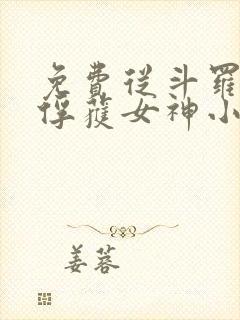 免費從斗羅
俘蓃女神小
姜蓉